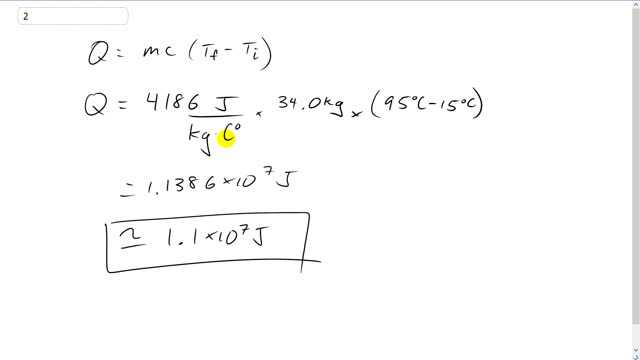 2
Q = mc (Tf - Ti)
Q = 4186 J / kg·C° × 34.0kg × (95°C - 15°C)
= 1.1386 × 10⁷ J
≃ 1.1 × 10⁷ J